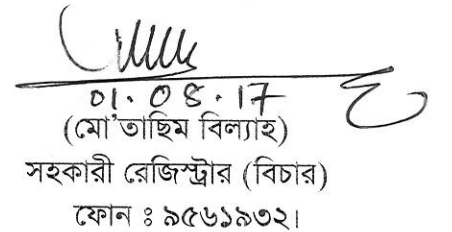 01.08.17
(মো'তাছিম বিল্যাহ)
সহকারী রেজিস্ট্রার (বিচার)
ফোন ঃ ৯৫৬১৯৩২।